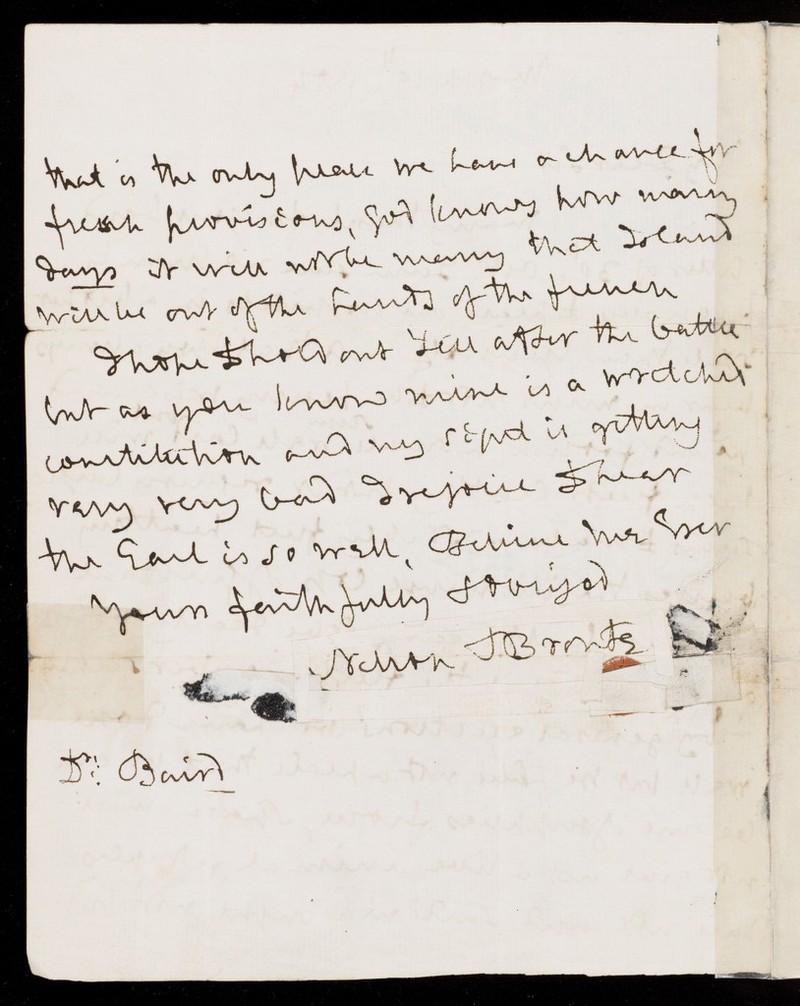 that is the only place we have a chance for
fresh provisions, God knows how many
days it will not be many that Island
will be out of the hands of the french
I hope to hold out till after the battle
but as you know mine is a wretched
constitution and my sight is getting
very very bad I rejoice to hear
the Earl is so well, Believe Me Ever
Yours faithfully & obliged
Nelson & Bronte
Dr: Baird